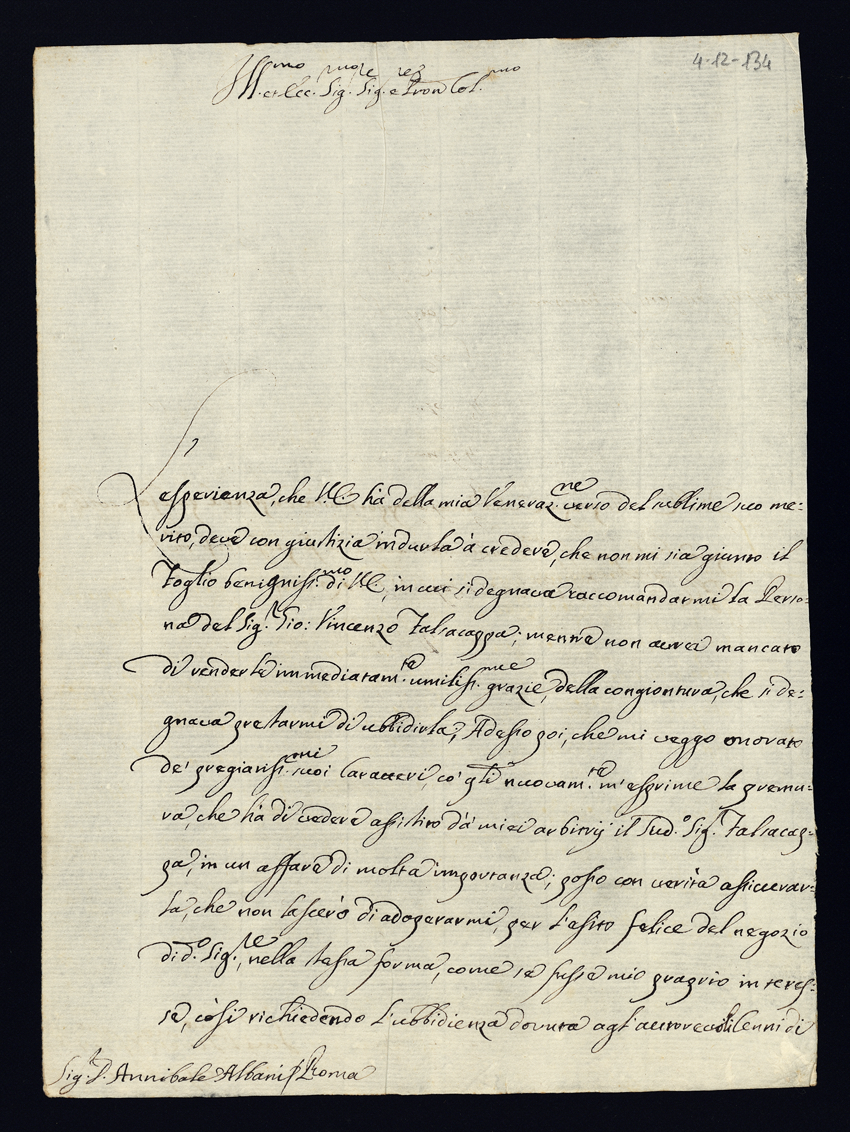 4-12-134
Ill.mo et Ecc. Sig. Sig.re e Pron Col.mo
L'esperienza, che V.E. hà della mia Veneraz.ne verso del sublime suo me=
rito, deve con giustizia indurla à credere, che non mi sia giunto il
foglio benigniss.mo di V.E., in cui si degnava raccomandarmi la Perso-
na del Sig.r Gio: Vincenzo Falsacappa; mentre non averei mancato
di renderle immediatam.te umiliss.me grazie, della congiontura, che si de=
gnava prestarmi di ubbidirla; Adesso poi, che mi veggo onorato
de' pregiatiss.mi suoi Caratteri, co' gli nuovam.te m'esprime la premu=
ra, che hà di vedere assistito dà miei arbitrij il Sud.o Sig.r Falsacap-
pa, in un affare di molta importanza; posso con verità assicurar=
la, che non lascerò di adoperarmi, per l'esito felice del negozio
di d.o Sig.re, nella stessa forma, come se fusse mio proprio interes=
se, così richiedendo l'ubbidienza dovuta agl'autorevoli Cenni di
Sig.r D. Annibale Albani / Roma